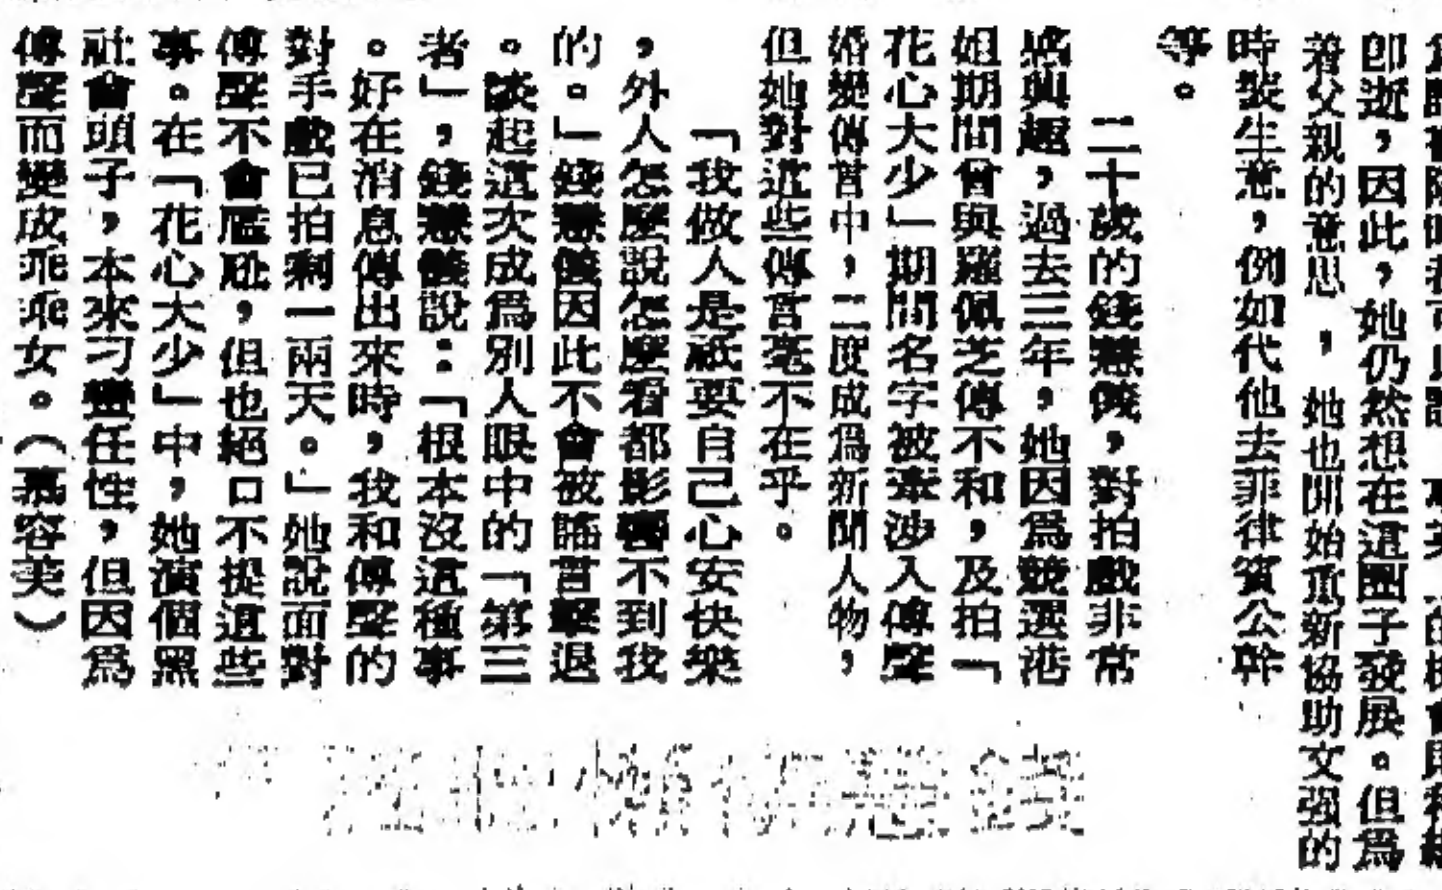 即逝，因此，她仍然想在這圈子發展。但爲
着父親的意思，她也開始重新協助文强的
時裝生意，例如代他去菲律賓公幹
等。
二十歲的錢慧儀，對拍戲非常
感興趣，過去三年，她因爲競選港
姐期間曾與羅佩芝傳不和，及拍「
花心大少」期間名字被牽涉入傅聲
婚變傳言中，二度成爲新聞人物，
但她對這些傳言毫不在乎。
「我做人是祇要自己心安快樂
，外人怎麼說怎麼看都影響不到我
的。」錢慧儀因此不會被謠言擊退
。談起這次成爲別人眼中的「第三
者」，錢慧儀說：「根本沒這種事
。好在消息傳出來時，我和傅聲的
對手戲已拍剩一兩天。」她說面對
傅聲不會尷尬，但也絕口不提這些
事。在「花心大少」中，她演個黑
社會頭子，本來刁蠻任性，但因爲
傅聲而變成乖乖女。（慕容美）